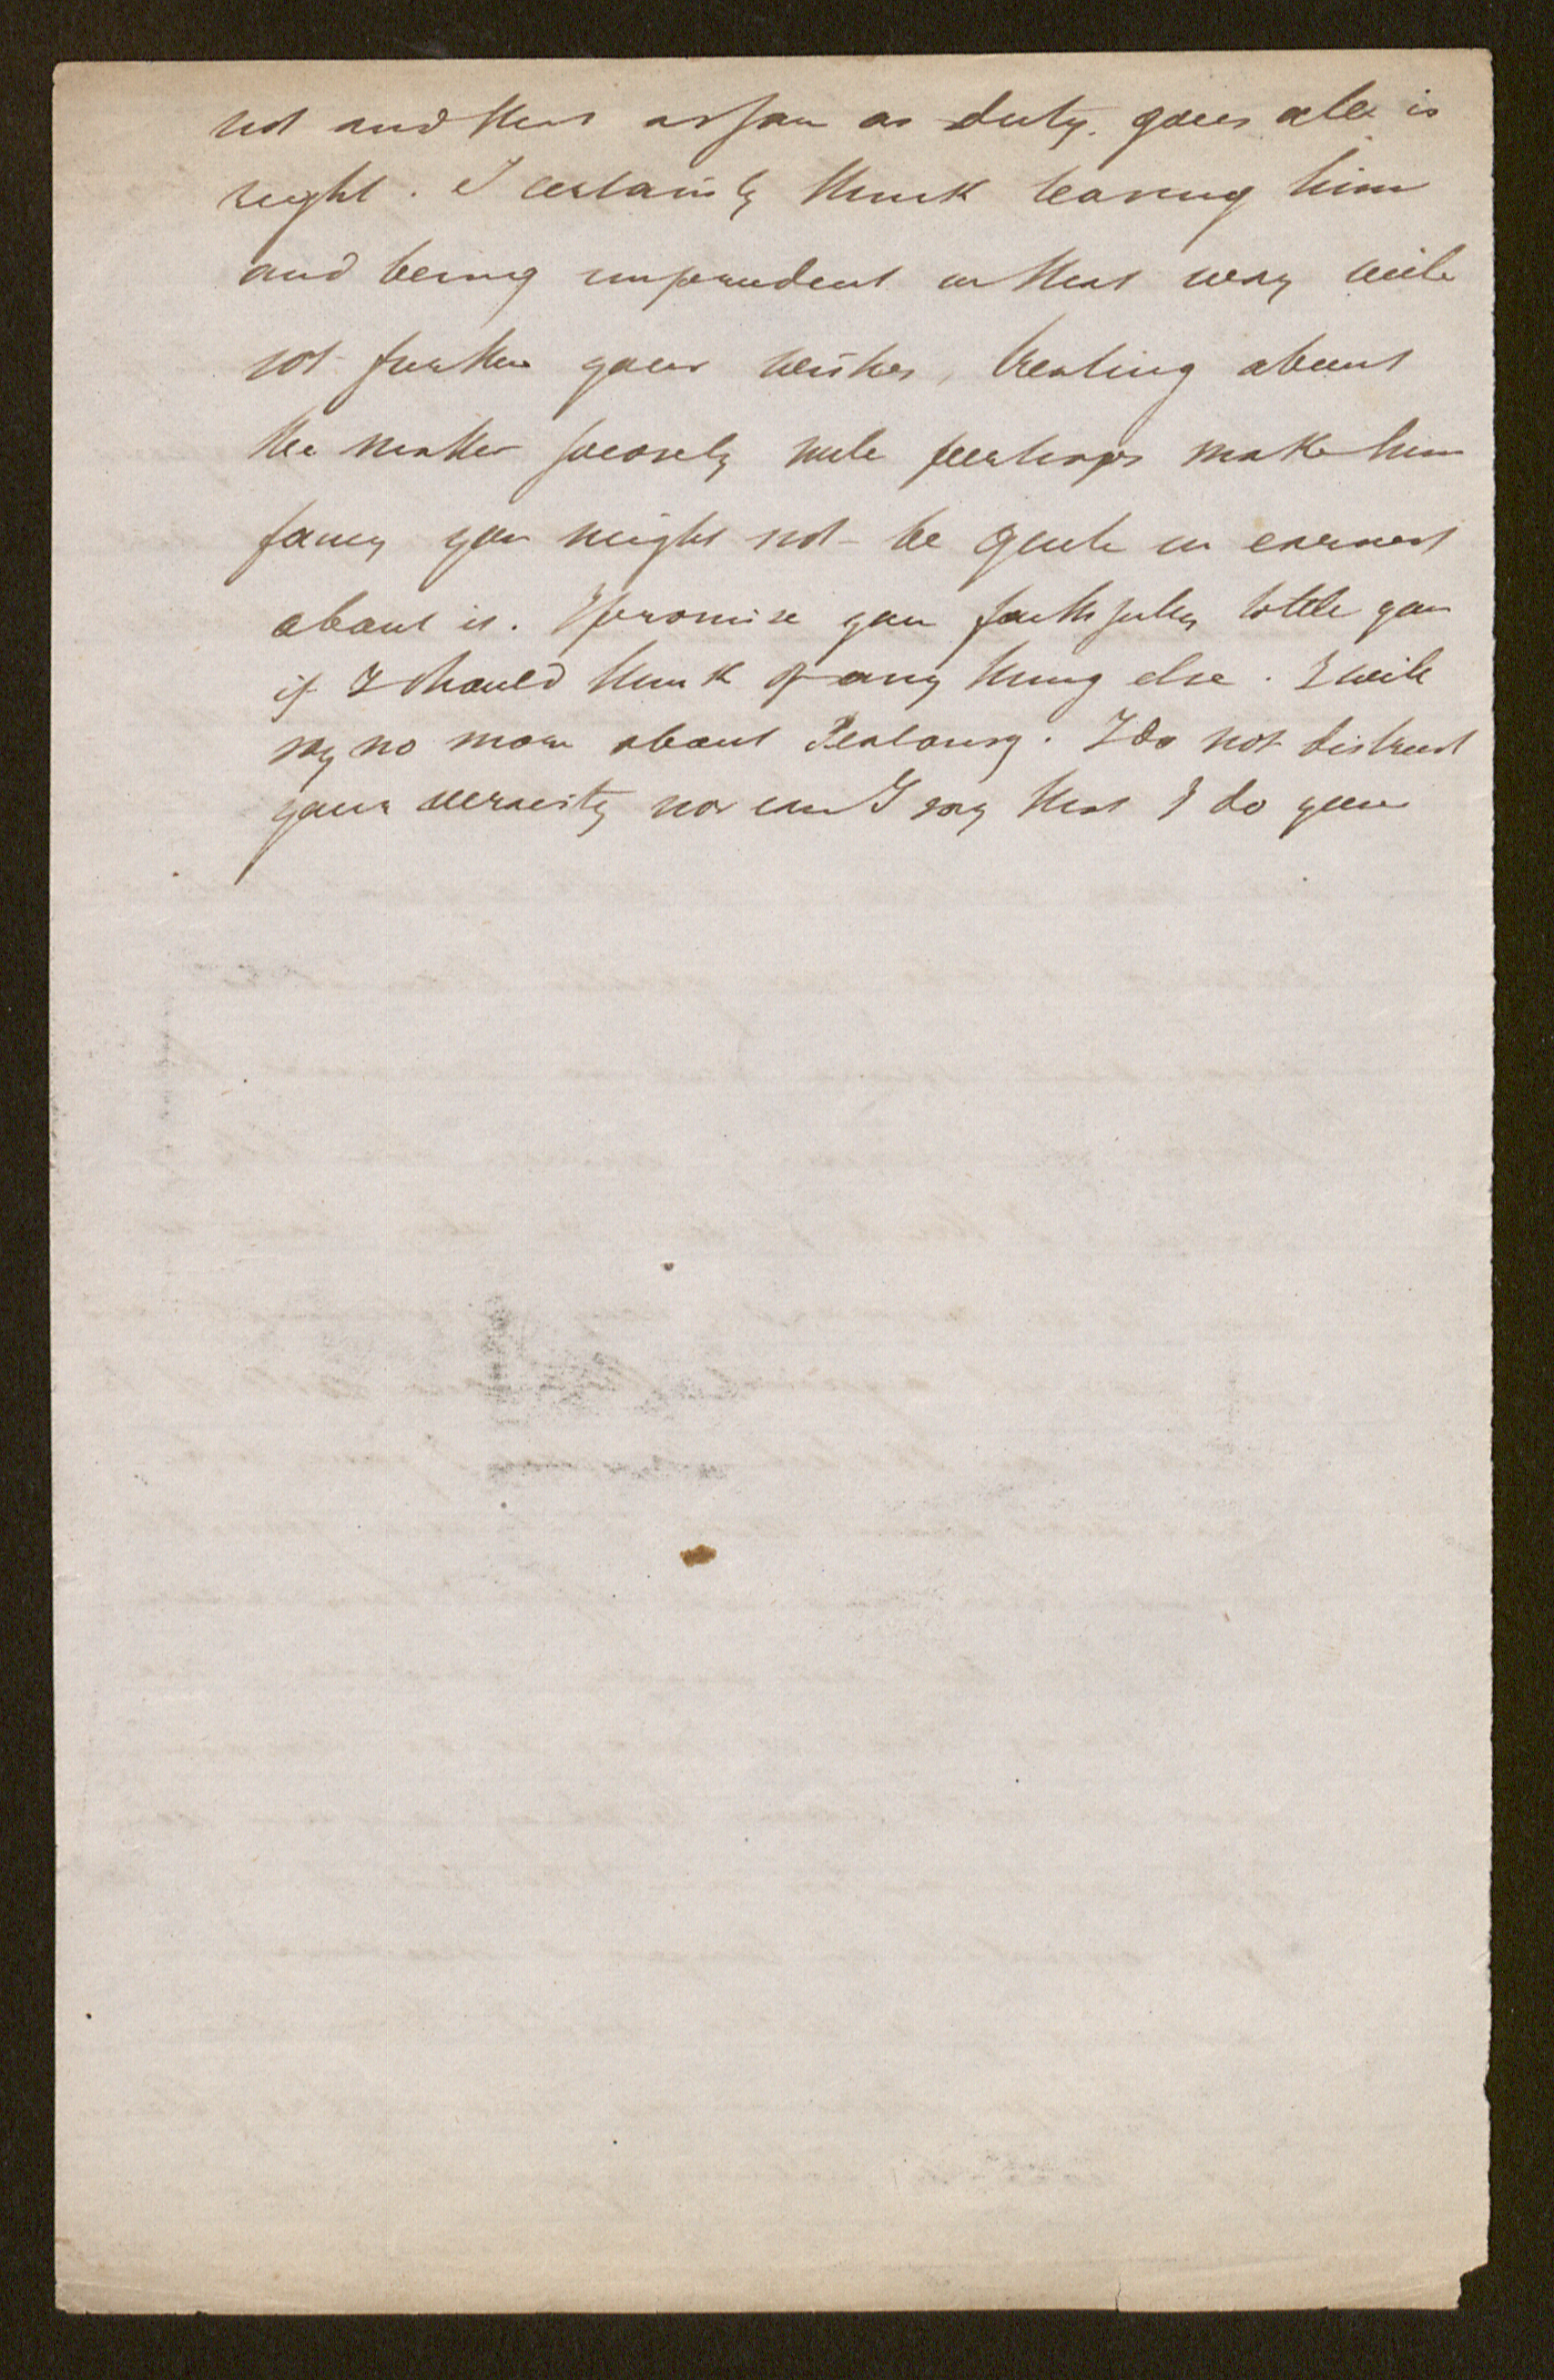 not and thus as far as duty. goes all is
right. I certainly think teasing him
and being imprudent in that way will
not further your wishes, treating about
the matter jocosely will perhaps make him
fancy you might not be quite in earnest
about it. I promise you faithfully to tell you
if I should think of any thing else. I will
say no more about Jealousy. I do not distrust
your veracity nor can I say that I do your